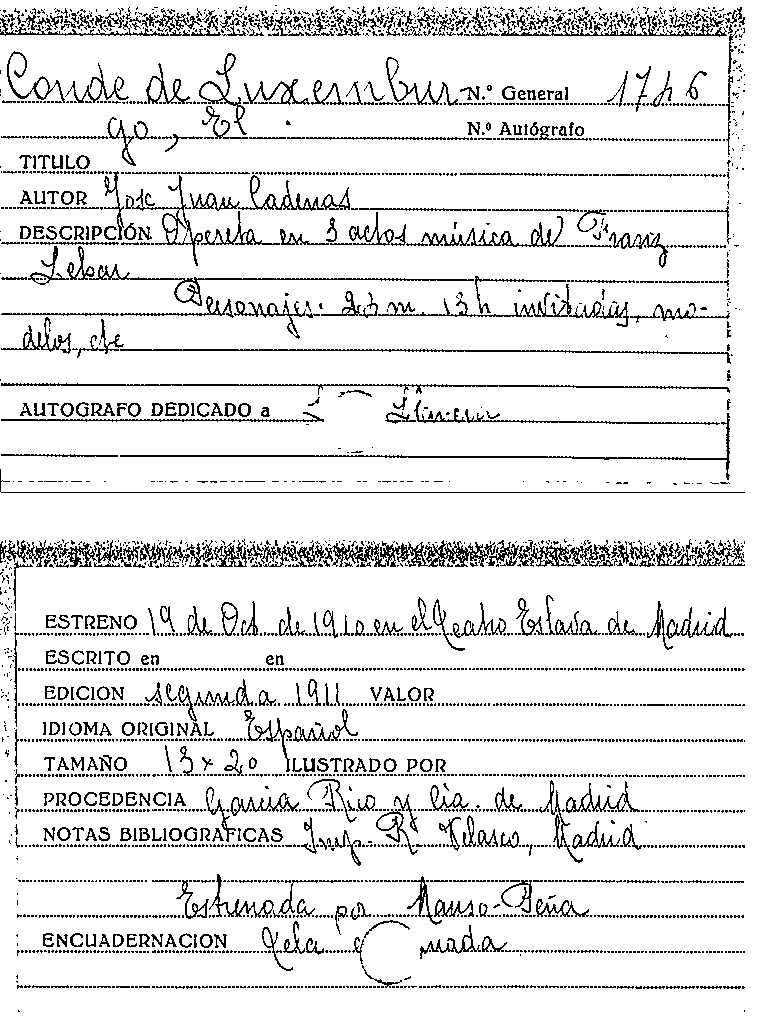 Conde de Luxembur- N.º General 1746
go, El. N.º Autógrafo
TITULO
AUTOR Jose Juan Cadenas
DESCRIPCIÓN Opereta en 3 actos música de Franz
Lehar
Personajes. 23 m. 13 h invitadas, mo-
delos, etc
AUTOGRAFO DEDICADO a
ESTRENO 19 de Oct. de 1910 en el Teatro Eslava de Madrid
ESCRITO en en
EDICION segunda 1911 VALOR
IDIOMA ORIGINAL Español
TAMAÑO 13 x 20 ILUSTRADO POR
PROCEDENCIA Garcia Rico y Cia. de Madrid
NOTAS BIBLIOGRAFICAS Imp. R. Velasco, Madrid
Estrenada por Manso-Peña
ENCUADERNACION Tela